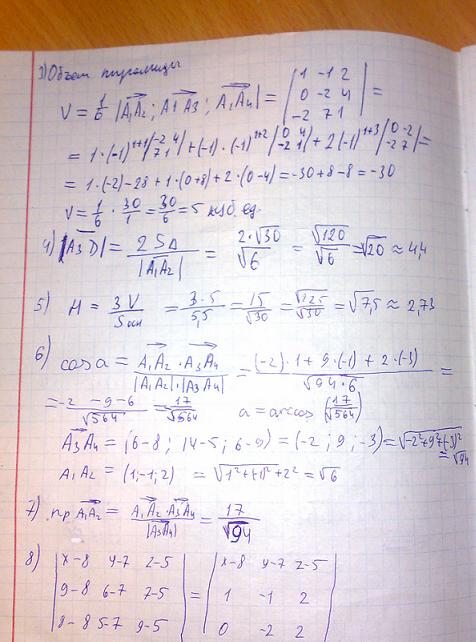 3) Объем пирамиды
V = 1/6 |A₁A₂; A1A3; A₁A₄| = |1 -1 2; 0 -2 4; -2 7 1| =
= 1·(-1)¹⁺¹|-2 4; 7 1| + (-1)·(-1)¹⁺²|0 4; -2 1| + 2(-1)¹⁺³|0 -2; -2 7| =
= 1·(-2)-28+1·(0+8)+2·(0-4) = -30+8-8 = -30
V = 1/6 · 30/1 = 30/6 = 5 куб. ед.
4) |A3D| = 2S△/|A₁A₂| = 2·√30/√6 = √120/√6 = √20 ≈ 4,4
5) H = 3V/Sосн = 3·5/5,5 = 15/√30 = √225/√30 = √7,5 ≈ 2,73
6) cos a = A₁A₂·A₃A₄/|A₁A₂|·|A3A4| = (-2)·1+9·(-1)+2·(-3)/√94·6 =
= -2-9-6/√564 = 17/√564 a = arccos (17/√564)
A₃A₄ = (6-8; 14-5; 6-9) = (-2; 9; -3) = √-2²+9²+(-3)² = √94
A₁A₂ = (1;-1;2) = √1²+(-1)²+2² = √6
7) пр A₁A₂ = A₁A₂·A3A4/|A3A4| = 17/√94
8) |x-8 y-7 z-5| = |x-8 y-7 z-5|
9-8 6-7 7-5 1 -1 2
8-8 5-7 9-5 0 -2 2